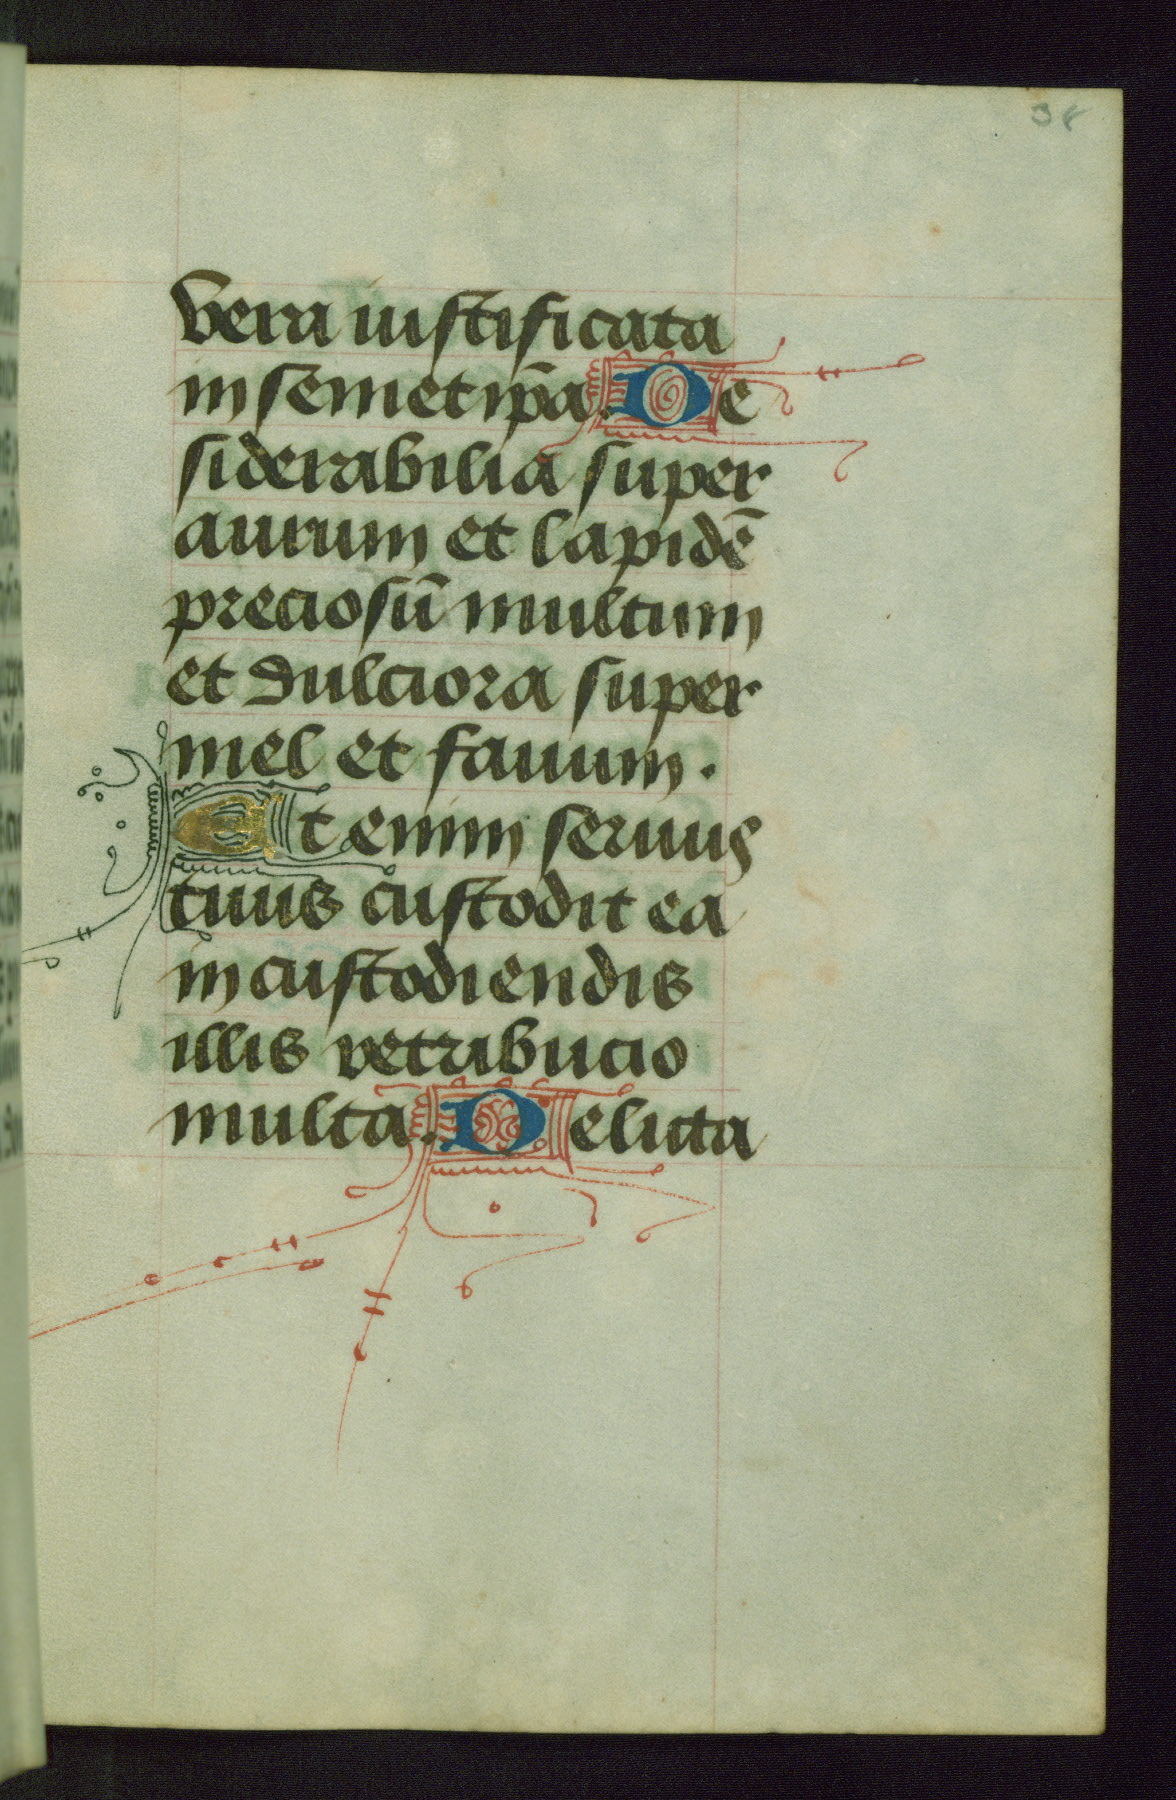 38
vera iustificata
in semetip̄a. De
siderabilia super
aurum et lapidē
preciosū multum
et dulciora super
mel et fauum.
Et enim seruus
tuus custodit ea
in custodiendis
illis retribucio
multa. Delicta